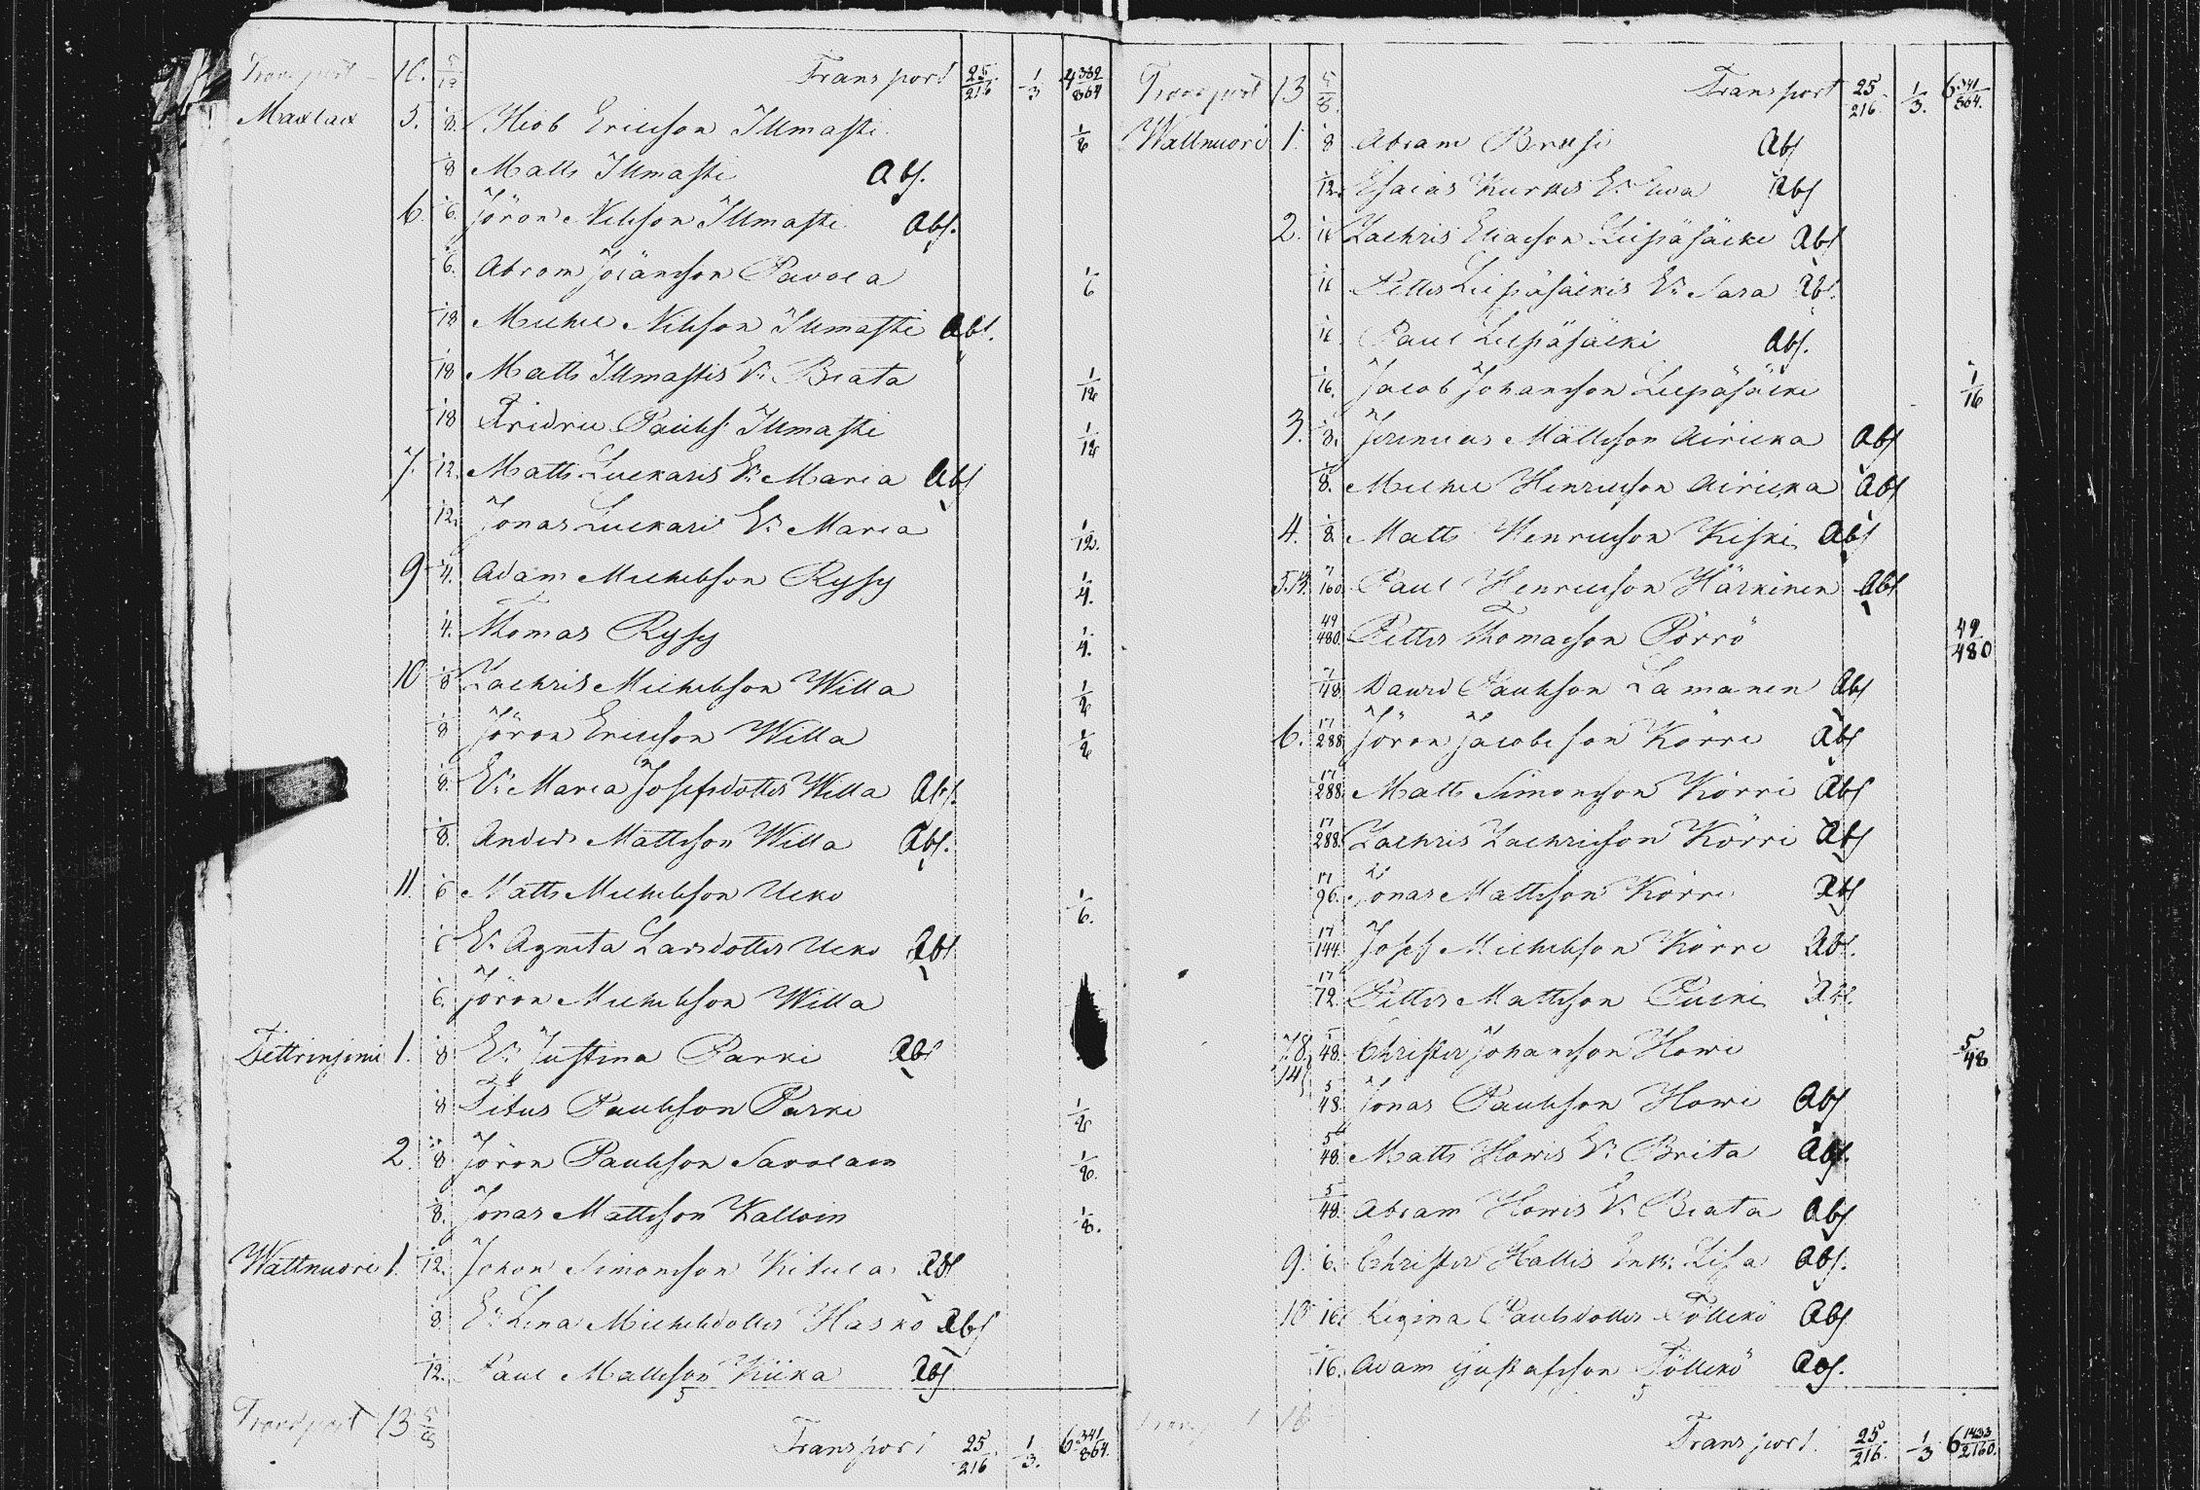 Transport 10. 5/12 Transport 25/216 1/3 4 332/864
Maxlax 5. 1/8. Hiob Ericsson Illmasti 1/8
1/8 Matts Illmasti Abs.
6. 1/6. Jöran Nilsson Illmasti Abs.
1/6. Abram Jöransson Pavola 1/6
1/18 Michel Nilsson Illmasti Abs.
1/18 Matts Illmastis E: Beata 1/18
1/18 Fridric Paulss: Illmasti 1/18
7. 1/12. Matts Luckaris E: Maria Abs
1/12. Jonas Luckaris E: Maria 1/12.
9 1/4. Adam Michelsson Rysy 1/4.
1/4. Thomas Rysy 1/4.
10 1/8 Zachris Michelsson Willa 1/8
1/8 Jöran Ericsson Willa 1/8
1/8. E: Maria Josefsdotter Willa Abs.
1/8. Anders Mattsson Willa Abs.
11. 1/6 Matts Michelsson Ucko 1/6.
1/6 E: Agneta Larsdotter Ucko Abs
1/6. Jöran Michelsson Willa
1. 1/8 E: Justina Parki Abs
1/8 Titus Paulsson Parki 1/8
2. 1/8 Jöran Paulsson Savolain 1/8.
1/8. Jonas Mattsson Kalloin 1/8.
Wattnuori 1. 1/12. Johan Simonsson Kitula Abs
1/8. E: Lena Michelsdotter Hasko Abs
1/12. Paul Mattsson Kiika Abs
Transport 13 5/8 Transport 25/216 1/3. 6 341/864.
Transport 13 5/8. Transport 25/216. 1/3. 6 341/864.
Wattnuori 1. 1/8 Abram Brusi Abs
1/12. Esaias Kurkis E: Ewa Abs
2. 1/16 Zachris Eliasson Leipäsälki Abs
1/16 Petter Leipäsälkis E: Sara Abs.
1/16. Paul Leipäsälki Abs.
1/16. Jacob Johansson Leipäsälki 1/16
3. 1/8. Jeremias Mattsson Airicka Abs
1/8. Michel Henricsson Airicka Abs
4. 1/8. Matts Henricsson Kiski Abs
5.13. 7/160. Paul Henricsson Härkinen Abs
49/480. Petter Thomasson Pörrö 49/480
1/48. David Paulsson Lamanen Abs
6. 17/288 Jöran Jacobsson Körri Abs
17/288. Matts Simonsson Körri Abs
17/288. Zachris Zachrisson Körri Abs
17/96. Jonas Mattsson Körri Abs
17/144. Josef Michelsson Körri Abs.
17/72. Petter Mattsson Pucki Abs.
7.8. 14 5/48. Christer Johansson Howi 5/48
5/48. Jonas Paulsson Howi Abs
5/48. Matts Howis E: Brita Abs.
5/48. Abram Howis E: Beata Abs
9. 1/6. Christer Hallis Enk: Lisa Abs.
10 1/16. Regina Paulsdotter Töllckö Abs
1/16. Adam Gustafsson Töllckö Abs.
Transport 16 Transport. 25/216. 1/3 6 1433/2160.